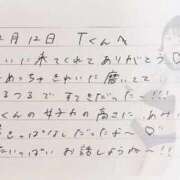 2月12日 Tくんへ
いに来てくれてありがとう♡
めっちゃきれいに磨いてて
つるつるですてきだった〜!!!
くんの女子力の高さに、
っぱなしだったよ〜♡
いっぱい お話しようね〜!!